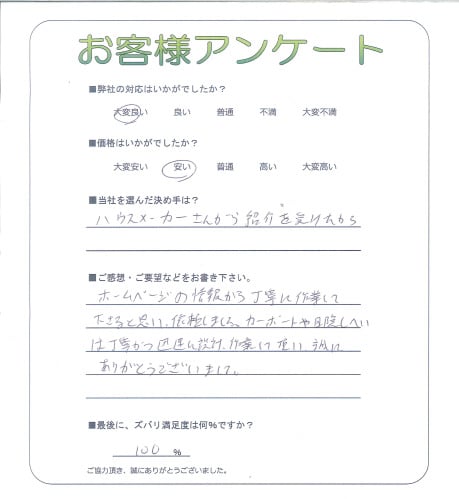 お客様アンケート
■弊社の対応はいかがでしたか？
大変良い 良い 普通 不満 大変不満
■価格はいかがでしたか？
大変安い 安い 普通 高い 大変高い
■当社を選んだ決め手は？
ハウスメーカーさんから紹介を受けたから
■ご感想・ご要望などをお書き下さい。
ホームページの情報から丁寧に作業して
下さると思い、依頼しました。カーポートや目隠しへい
は丁寧かつ迅速に設計、作業して頂い、誠に
ありがとうございました。
■最後に、ズバリ満足度は何％ですか？
100 ％
ご協力頂き、誠にありがとうございました。